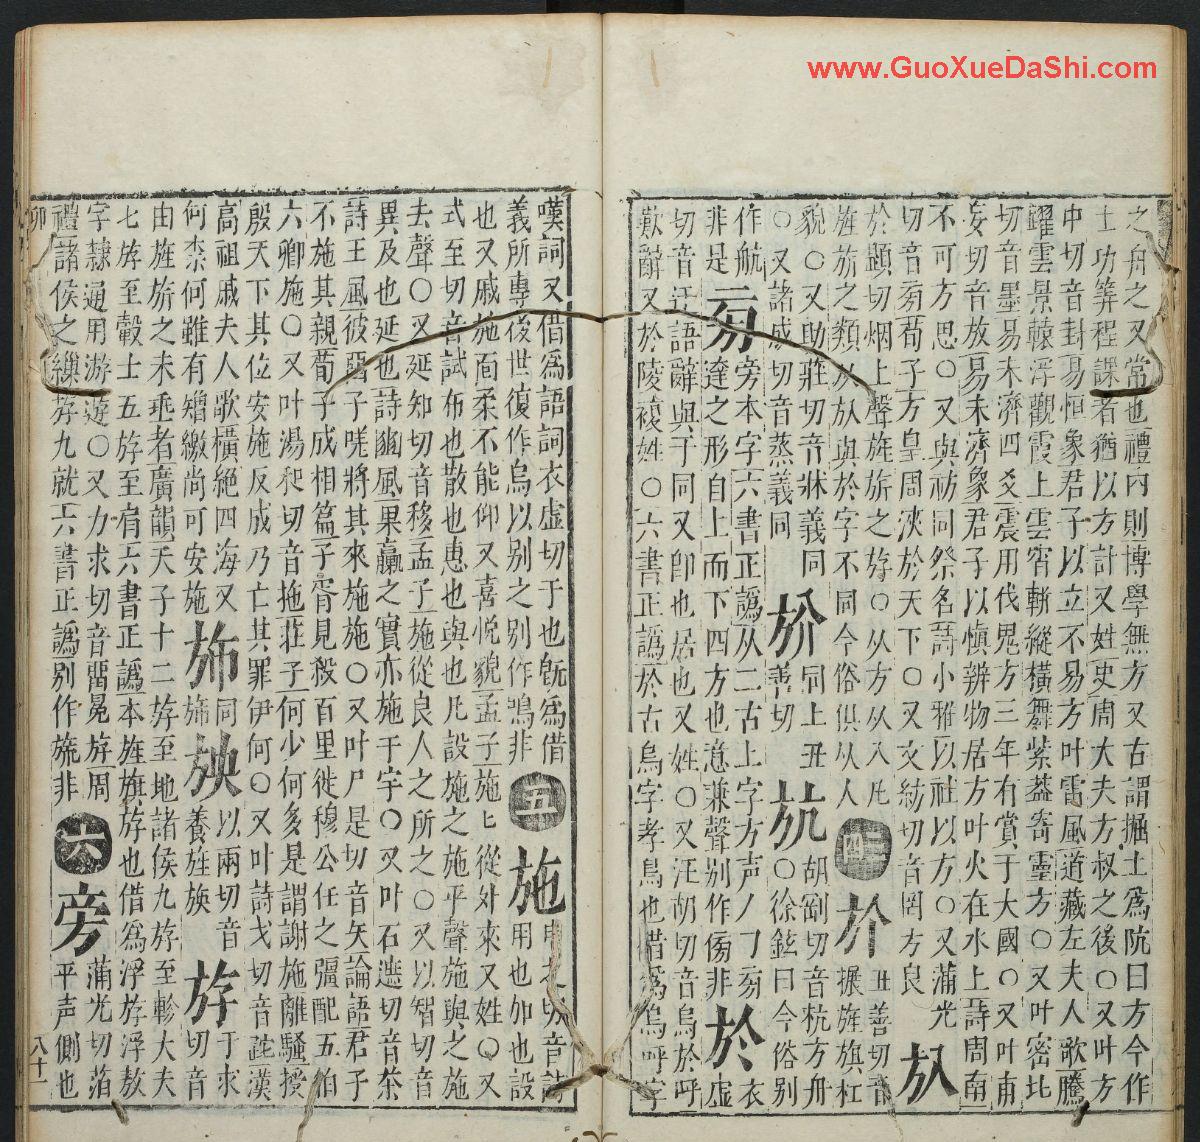 www.GuoXueDaShi.com
之舟之又常也禮內則博學無方又古謂掘土爲阬曰方今作
土功筭程課者猶以方計又姓史周大夫方叔之後○又叶方
中切音封易恒象君子以立不易方叶雷風道藏左夫人歌騰
躍雲景轅浮觀霞上雲宵軿縱橫舞紫蓋寄靈方○又叶密比
切音墨易未濟四爻震用伐鬼方三年有賞于大國○又叶甫
妄切音放易未濟象君子以愼辨物居方叶火在水上詩周南
不可方思○又與祊同祭名詩小雅以社以方○又蒲光
切音㫄荀子方皇周浹於天下○又文紡切音罔方良 㫃
於蹇切烟上聲旌旂之斿○从方从入凡
旌旂之類从㫃與於字不同今俗俱从人 四 㫃 丑善切音
貌○又助莊切音牀義同
○又諸成切音蒸義同 㫅 同上丑善切
㫁 胡劉切音杭方舟
○徐鉉曰今俗别
作航
非是 㫄 旁本字六書正譌从二古上字方声丿𠃌㫄
達之形自上而下四方也意兼聲别作傍非 於 衣虛
切音迂語辭與于同又卽也居也又姓○又汪胡切音烏於呼
歎辭又於陵複姓○六書正譌於古烏字孝鳥也借爲烏呼字
嘆詞又借爲語詞衣虛切于也旣爲借
義所專後世復作烏以别之别作嗚非 五 施
用也加也設
也又戚施面柔不能仰又喜悅貌孟子施施從外來又姓○又
式至切音試布也散也惠也與也凡設施之施平聲施與之施
去聲○又延知切音移孟子施從良人之所之○又以智切音
異及也延也詩豳風果臝之實亦施于宇○又叶石遮切音茶
詩王風彼留子嗟將其來施施○又叶尸是切音矢論語君子
不施其親荀子成相篇子胥見殺百里徙穆公任之彊配五伯
六卿施○又叶湯何切音拖莊子何少何多是謂謝施離騷授
殷天下其位安施反成乃亡其罪伊何○又叶詩戈切音䟾漢
高祖戚夫人歌橫絕四海又
何柰何雖有矰繳尚可安施 㫍 同旆 㫊 以兩切音養姓族
斿 于求切音
由旌旂之末垂者廣韻天子十二斿至地諸侯九斿至軫大夫
七斿至轂士五斿至肩六書正譌本旌旗斿也借爲浮斿浮敖
字隸通用游遊○又力求切音留冕斿周
禮諸侯之繅斿九就六書正譌别作旒非 六 旁 蒲光切
平声側也
卯
八十一